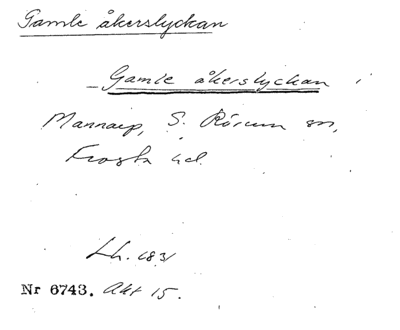 Gamle åkerslyckan
Gamle åkerslyckan i
Mannarp, S. Rörum sn,
Frosta hd.
Lh. 1831
Nr 6743. Akt 15.